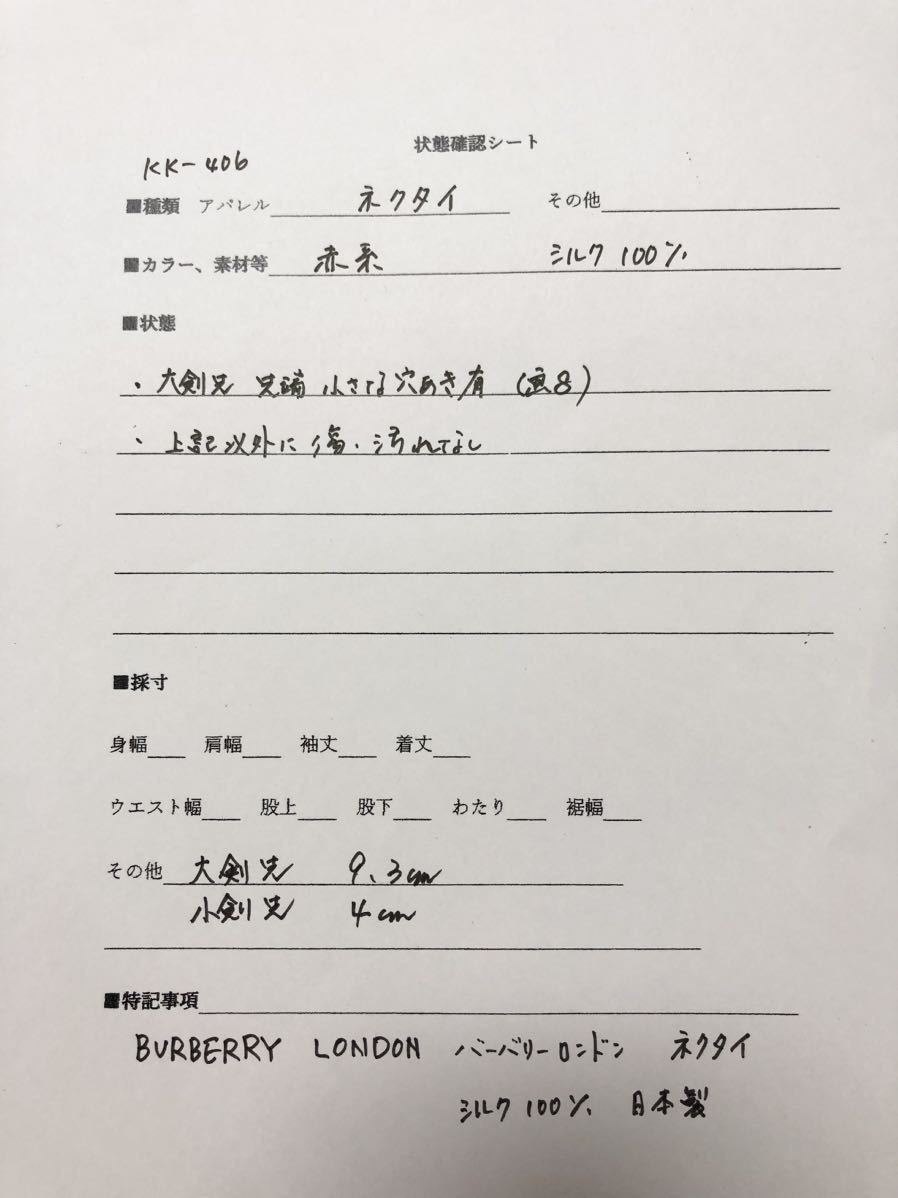 状態確認シート
KK-406
■種類 アパレル ネクタイ その他
■カラー、素材等 赤系 シルク 100%
■状態
・大剣先 先端 小さな穴あき有 (画8)
・上記以外に傷・汚れてなし
■採寸
身幅 肩幅 袖丈 着丈
ウエスト幅 股上 股下 わたり 裾幅
その他 大剣先 9.3cm
小剣先 4cm
■特記事項
BURBERRY LONDON バーバリーロンドン ネクタイ
シルク 100% 日本製